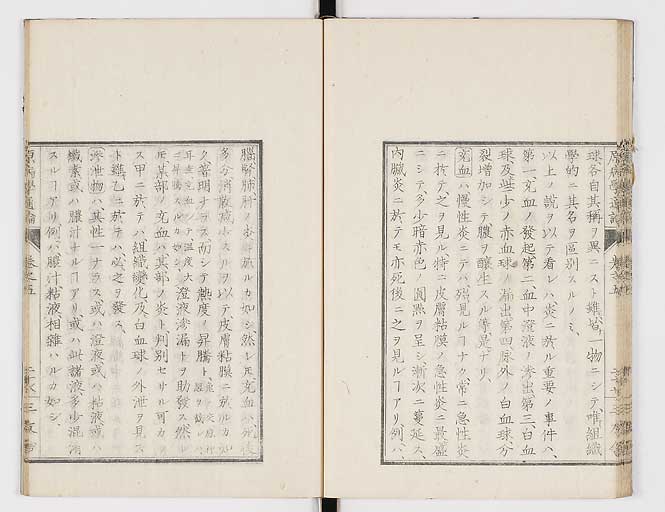 球各自其稱ヲ異ニスト雖𪜈一物ニシテ唯組織
學的ニ其名ヲ區別スルノミ
以上ノ說ヲ以テ看レハ炎ニ於ル重要ノ事件ハ
第一充血ノ發起第二血中澄液ノ滲出第三白血
球及些少ノ赤血球ノ漏出第四脉外ノ白血球分
裂增加シテ膿ヲ釀生スル等是ナリ
充血ハ慢性炎ニテハ殆見ルヿナク常ニ急性炎
ニ於テ之ヲ見ル特ニ皮膚粘膜ノ急性炎ニ最盛
ニシテ多少暗赤色ノ圓點ヲ呈シ漸次ニ蔓延ス
內臟炎ニ於テモ亦死後ニ之ヲ見ルヿアリ例ハ
原病學通論
卷之五
三
腦腎肺肝ノ炎ニ於ルカ如シ然レ𪜈充血ハ死後
多分消散減少スルヲ以テ皮膚粘膜ニ於ルカ如
ク著明ナラス而シテ熱度ノ昇騰ト
澄液滲漏トヲ助發ス然レ
𪜈某部ノ充血ハ其部ノ炎ト判別セサル可カラ
ス甲ニ於テハ組織變化及白血球ノ外泄ヲ見ス
ト雖乙ニ於テハ必之ヲ發ス
滲泄物ハ其性一ナラス或ハ澄液或ハ粘液或ハ
纖素或ハ膿汁ナルヿアリ或ハ此諸液多少混淆
スルヿアリ例ハ膿汁粘液相雜ハルカ如シ
原病學通論
卷之五
三